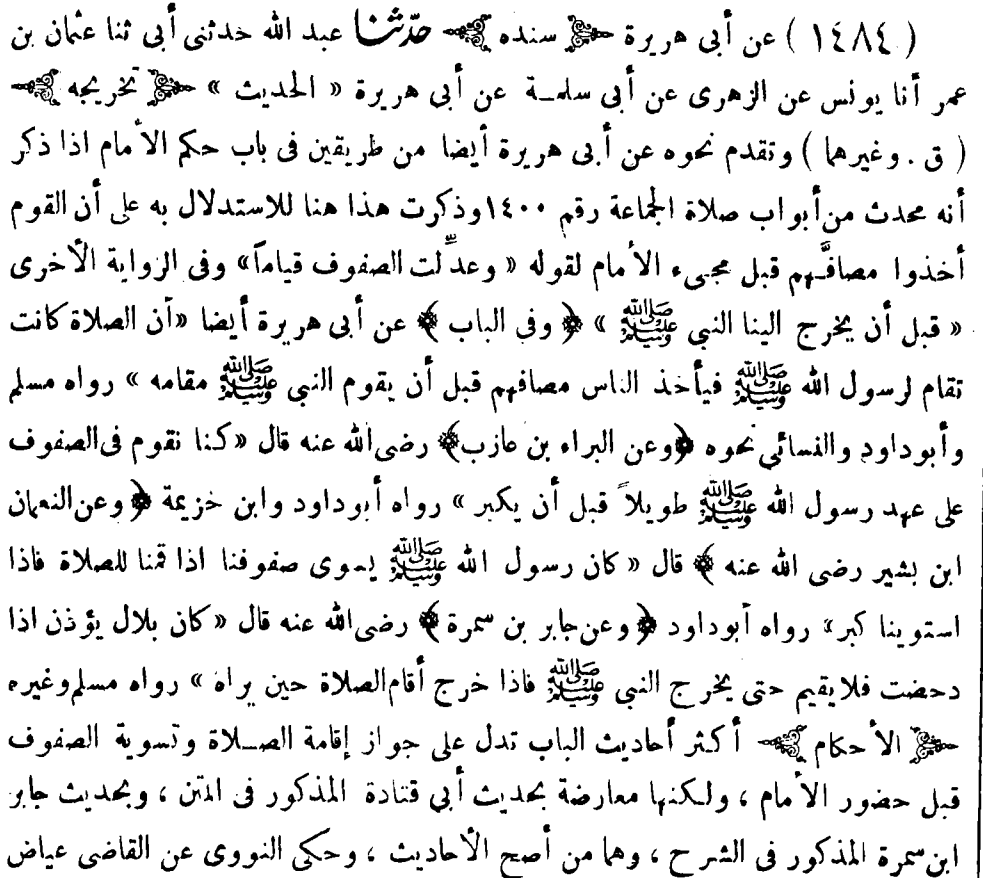 ( ١٤٨٤ ) عن أبى هريرة ﴿ سنده ﴾ حدّثنا عبد الله حدثنى أبى ثنا عثمان بن
عمر أنا يونس عن الزهرى عن أبى سلمـة عن أبى هريرة « الحديث » ﴿ تخريجه ﴾
( ق . وغيرهما ) وتقدم نحوه عن أبى هريرة أيضا من طريقين فى باب حكم الأمام اذا ذكر
أنه محدث من أبواب صلاة الجماعة رقم ١٤٠٠ وذكرت هذا هنا للاستدلال به على أن القوم
أخذوا مصافَّهم قبل مجىء الأمام لقوله « وعدِّلت الصفوف قياماً» وفى الرواية الأخرى
« قبل أن يخرج الينا النبى ﷺ » ﴿ وفى الباب ﴾ عن أبى هريرة أيضا «أن الصلاة كانت
تقام لرسول الله ﷺ فيأخذ الناس مصافهم قبل أن يقوم النبى ﷺ مقامه » رواه مسلم
وأبوداود والنسائي نحوه ﴿وعن البراء بن عازب﴾ رضى الله عنه قال «كنا نقوم فى الصفوف
على عهد رسول الله ﷺ طويلاً قبل أن يكبر » رواه أبوداود وابن خزيمة ﴿ وعن النعمان
ابن بشير رضى الله عنه ﴾ قال « كان رسول الله ﷺ يسوى صفوفنا اذا قمنا للصلاة فاذا
استوينا كبر» رواه أبوداود ﴿ وعن جابر بن سمرة ﴾ رضى الله عنه قال « كان بلال يؤذن اذا
دحضت فلا يقيم حتى يخرج النبى ﷺ فاذا خرج أقام الصلاة حين يراه » رواه مسلم وغيره
﴿ الأحكام ﴾ أكثر أحاديث الباب تدل على جواز إقامة الصـلاة وتسوية الصفوف
قبل حضور الأمام ، ولكنها معارضة بحديث أبي قتادة المذكور فى المتن ، وبحديث جابر
ابن سمرة المذكور فى الشرح ، وهما من أصح الأحاديث ، وحكى النووى عن القاضى عياض